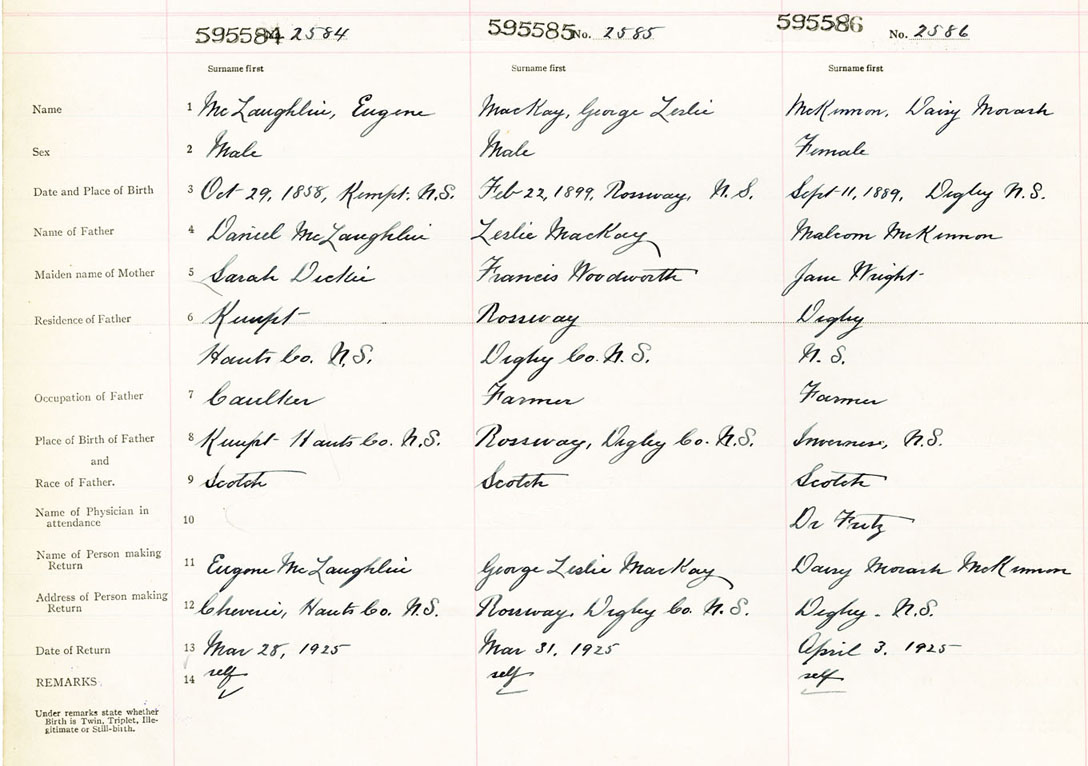 595584 No. 2584 595585 No. 2585 595586 No. 2586
Surname first Surname first Surname first
Name 1 McLaughlin, Eugene MacKay, George Leslie McKinnon, Daisy Morash
Sex 2 Male Male Female
Date and Place of Birth 3 Oct 29, 1858, Kempt. N.S. Feb 22, 1899, Rossway, N.S. Sept 11, 1889, Digby N.S.
Name of Father 4 Daniel McLaughlin Leslie MacKay Malcom McKinnon
Maiden name of Mother 5 Sarah Dickie Francis Woodworth Jane Wright
Residence of Father 6 Kempt Rossway Digby
Hants Co. N.S. Digby Co. N.S. N.S.
Occupation of Father 7 Caulker Farmer Farmer
Place of Birth of Father 8 Kempt Hants Co. N.S. Rossway, Digby Co. N.S. Inverness, N.S.
and
Race of Father. 9 Scotch Scotch Scotch
Name of Physician in
attendance 10 Dr Fritz
Name of Person making
Return 11 Eugene McLaughlin George Leslie MacKay Daisy Morash McKinnon
Address of Person making
Return 12 Cheverie, Hants Co. N.S. Rossway, Digby Co. N.S. Digby - N.S.
Date of Return 13 Mar 28, 1925 Mar 31, 1925 April 3, 1925
REMARKS. 14 self self self
Under remarks state whether
Birth is Twin, Triplet, Ille-
gitimate or Still-birth.